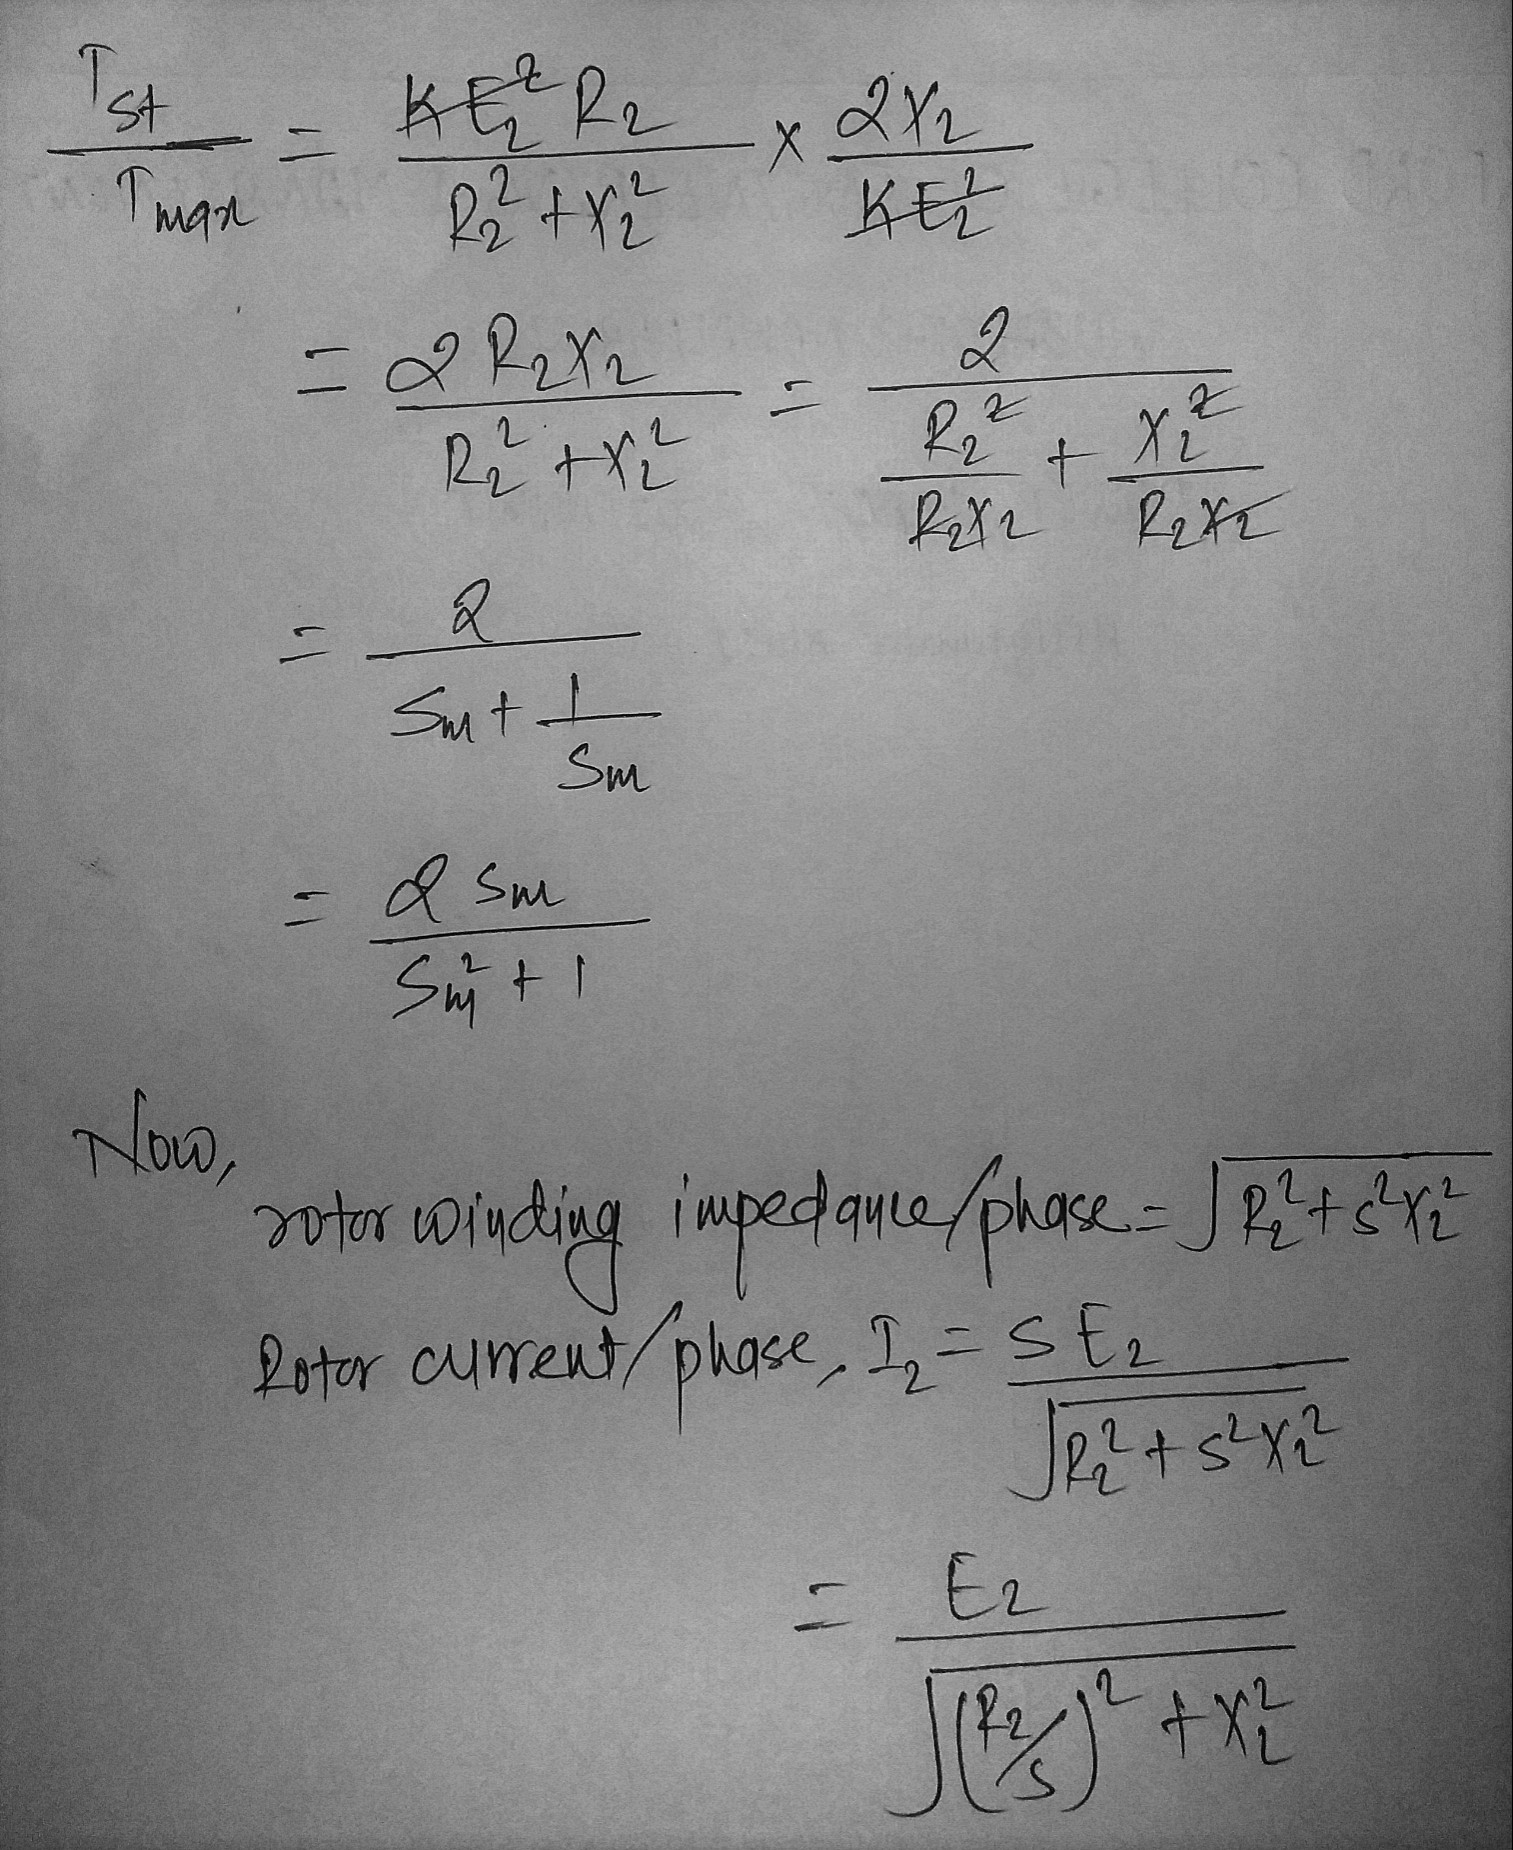 T_st / T_max = K E₂² R₂ / (R₂² + X₂²) × 2X₂ / K E₂²
= 2 R₂X₂ / (R₂² + X₂²) = 2 / (R₂² / R₂X₂ + X₂² / R₂X₂)
= 2 / (Sm + 1 / Sm)
= 2 Sm / (Sm² + 1)
Now,
rotor winding impedance/phase = √(R₂² + s²X₂²)
Rotor current/phase, I₂ = S E₂ / √(R₂² + s²X₂²)
= E₂ / √((R₂/s)² + X₂²)